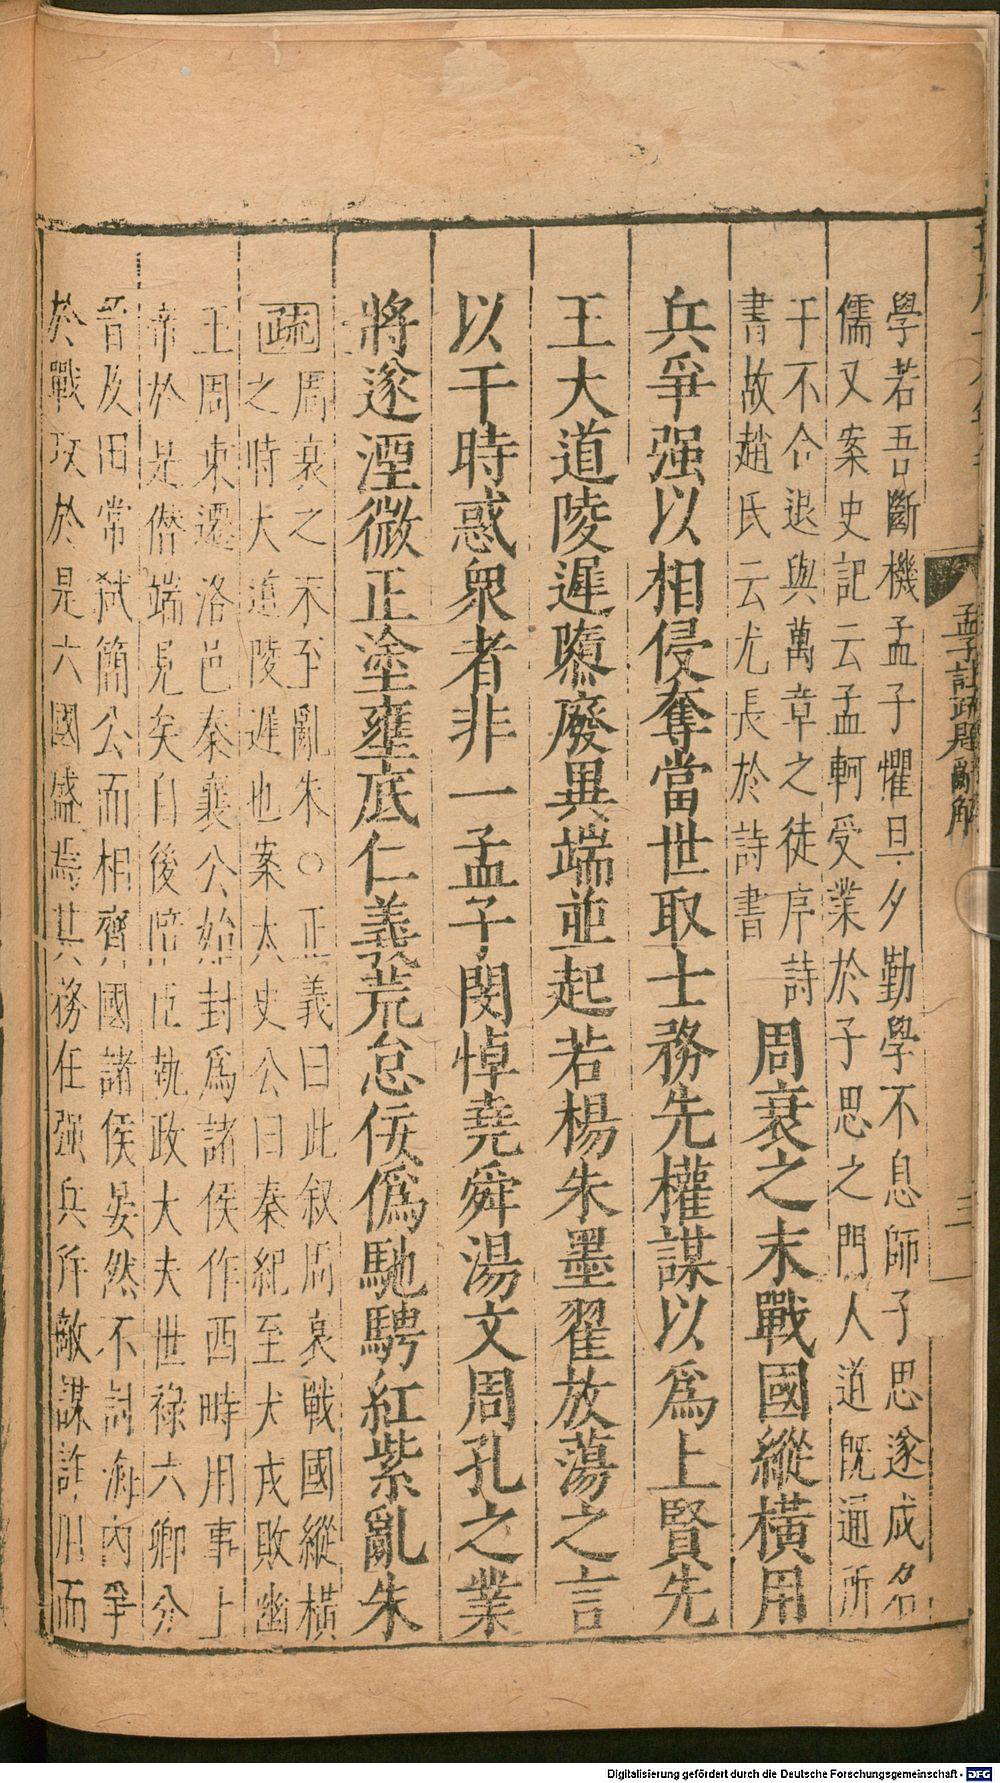 孟子註疏題辭解
三
學若吾斷機孟子懼旦夕勤學不息師子思遂成名
儒又案史記云孟軻受業於子思之門人道既通所
干不合退與萬章之徒序詩
書故趙氏云尤長於詩書
周衰之末戰國縱橫用
兵爭强以相侵奪當世取士務先權謀以爲上賢先
王大道陵遲隳廢異端並起若楊朱墨翟放蕩之言
以干時惑衆者非一孟子閔悼堯舜湯文周孔之業
將遂湮微正塗壅底仁義荒怠佞僞馳騁紅紫亂朱
疏
周衰之末至亂朱○正義曰此叙周衰戰國縱橫
之時大道陵遲也案太史公曰秦紀至犬戎敗幽
王周東遷洛邑秦襄公始封爲諸侯作西畤用事上
帝於是僭端見矣自後陪臣執政大夫世祿六卿分
晉及田常弑簡公而相齊國諸侯晏然不討海內爭
於戰攻於是六國盛焉其務在强兵并敵謀詐用而
Digitalisierung gefördert durch die Deutsche Forschungsgemeinschaft - DFG